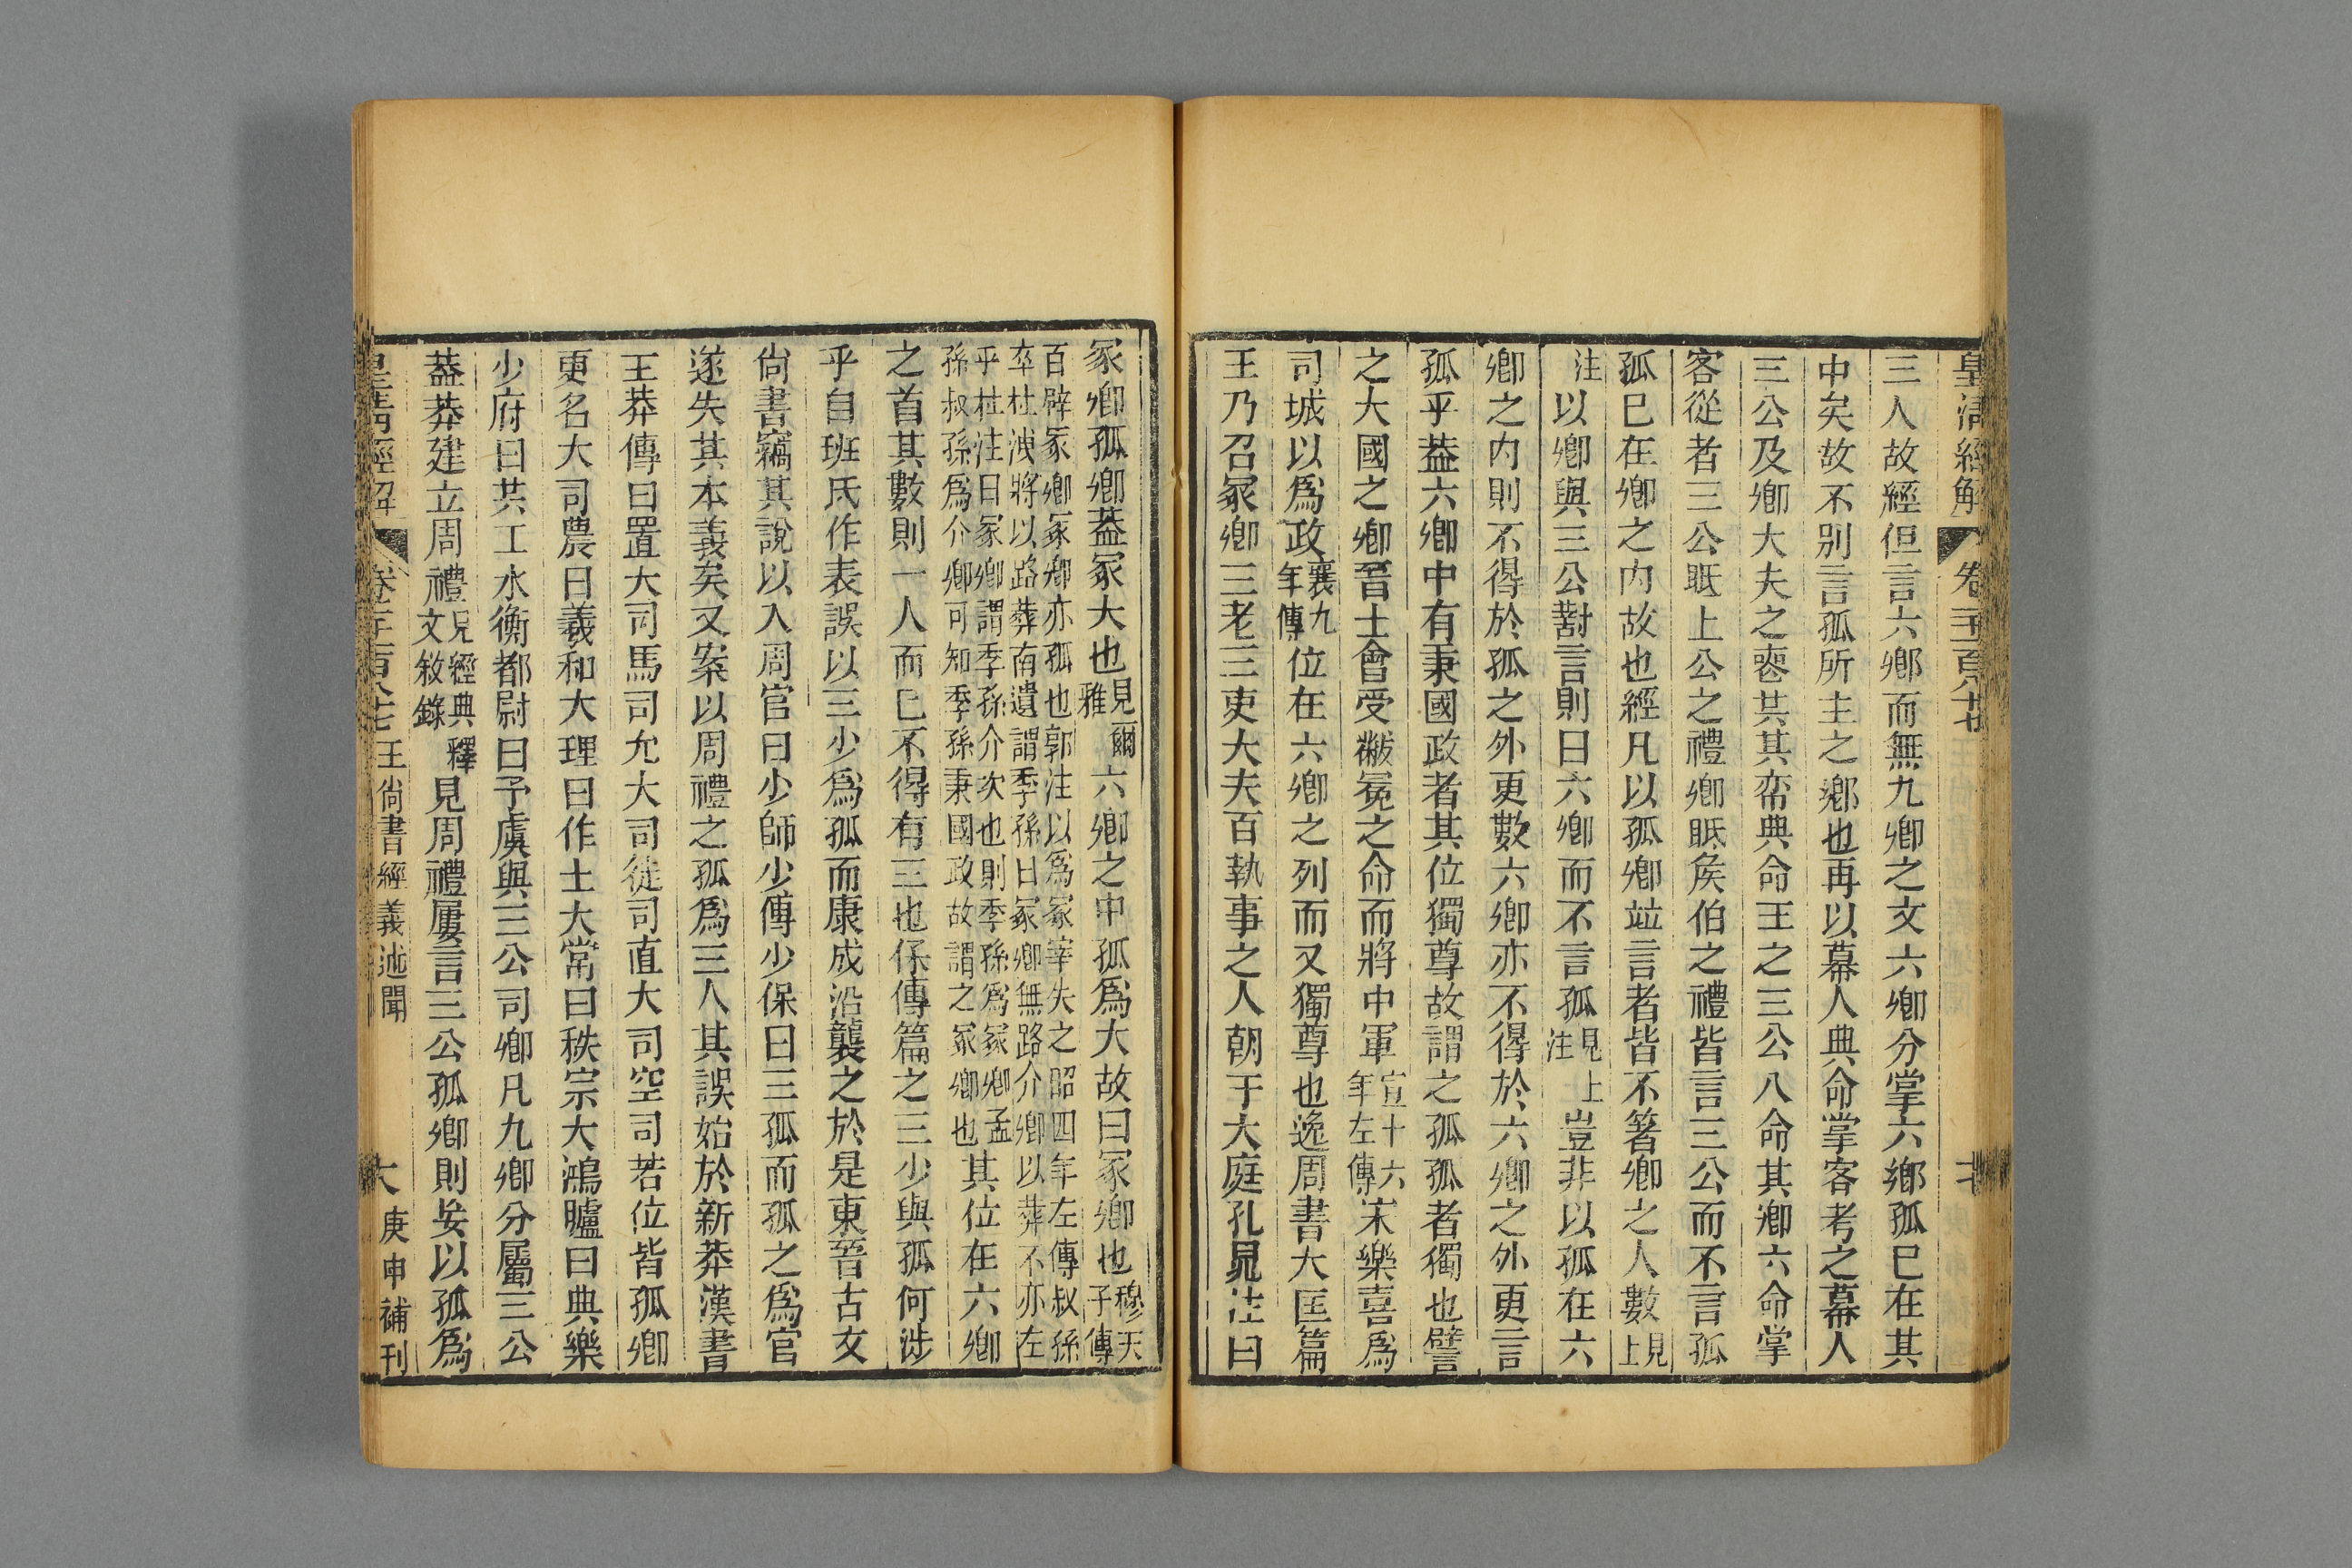 皇清經解 卷千一百八十七 十七
三人故經但言六鄉而無九卿之文六卿分掌六鄉孤已在其
中矣故不別言孤所主之鄉也再以幕人典命掌客考之幕人
三公及卿大夫之喪共其帟典命王之三公八命其卿六命掌
客從者三公眡上公之禮卿眡矦伯之禮皆言三公而不言孤
孤已在卿之内故也經凡以孤卿竝言者皆不箸卿之人數見上
注以卿與三公對言則曰六卿而不言孤見上注豈非以孤在六
卿之内則不得於孤之外更數六卿亦不得於六卿之外更言
孤乎葢六卿中有秉國政者其位獨尊故謂之孤孤者獨也譬
之大國之卿晉士會受黻冕之命而將中軍宣十六年左傳宋樂喜爲
司城以爲政襄九年傳位在六卿之列而又獨尊也逸周書大匡篇
王乃召冢卿三老三吏大夫百執事之人朝于大庭孔晁注曰
冢卿孤卿葢冢大也見爾雅六卿之中孤爲大故曰冢卿也穆天子傳
百辟冢卿冢卿亦孤也郭注以爲冢宰失之昭四年左傳叔孫
卒杜洩將以路葬南遺謂季孫曰冢卿無路介卿以葬不亦左
乎杜注曰冢卿謂季孫介次也則季孫爲冢卿孟
孫叔孫爲介卿可知季孫秉國政故謂之冢卿也其位在六卿
之首其數則一人而已不得有三也保傅篇之三少與孤何涉
乎自班氏作表誤以三少爲孤而康成沿襲之於是東晉古文
尙書竊其說以入周官曰少師少傅少保曰三孤而孤之爲官
遂失其本義矣又案以周禮之孤爲三人其誤始於新莽漢書
王莽傳曰置大司馬司允大司徒司直大司空司若位皆孤卿
更名大司農曰羲和大理曰作士大常曰秩宗大鴻臚曰典樂
少府曰共工水衡都尉曰予虞與三公司卿凡九卿分屬三公
葢莽建立周禮見經典釋文敘錄見周禮屢言三公孤卿則妄以孤爲
皇清經解 卷千一百八十七 王尙書經義述聞 大 庚申補刊